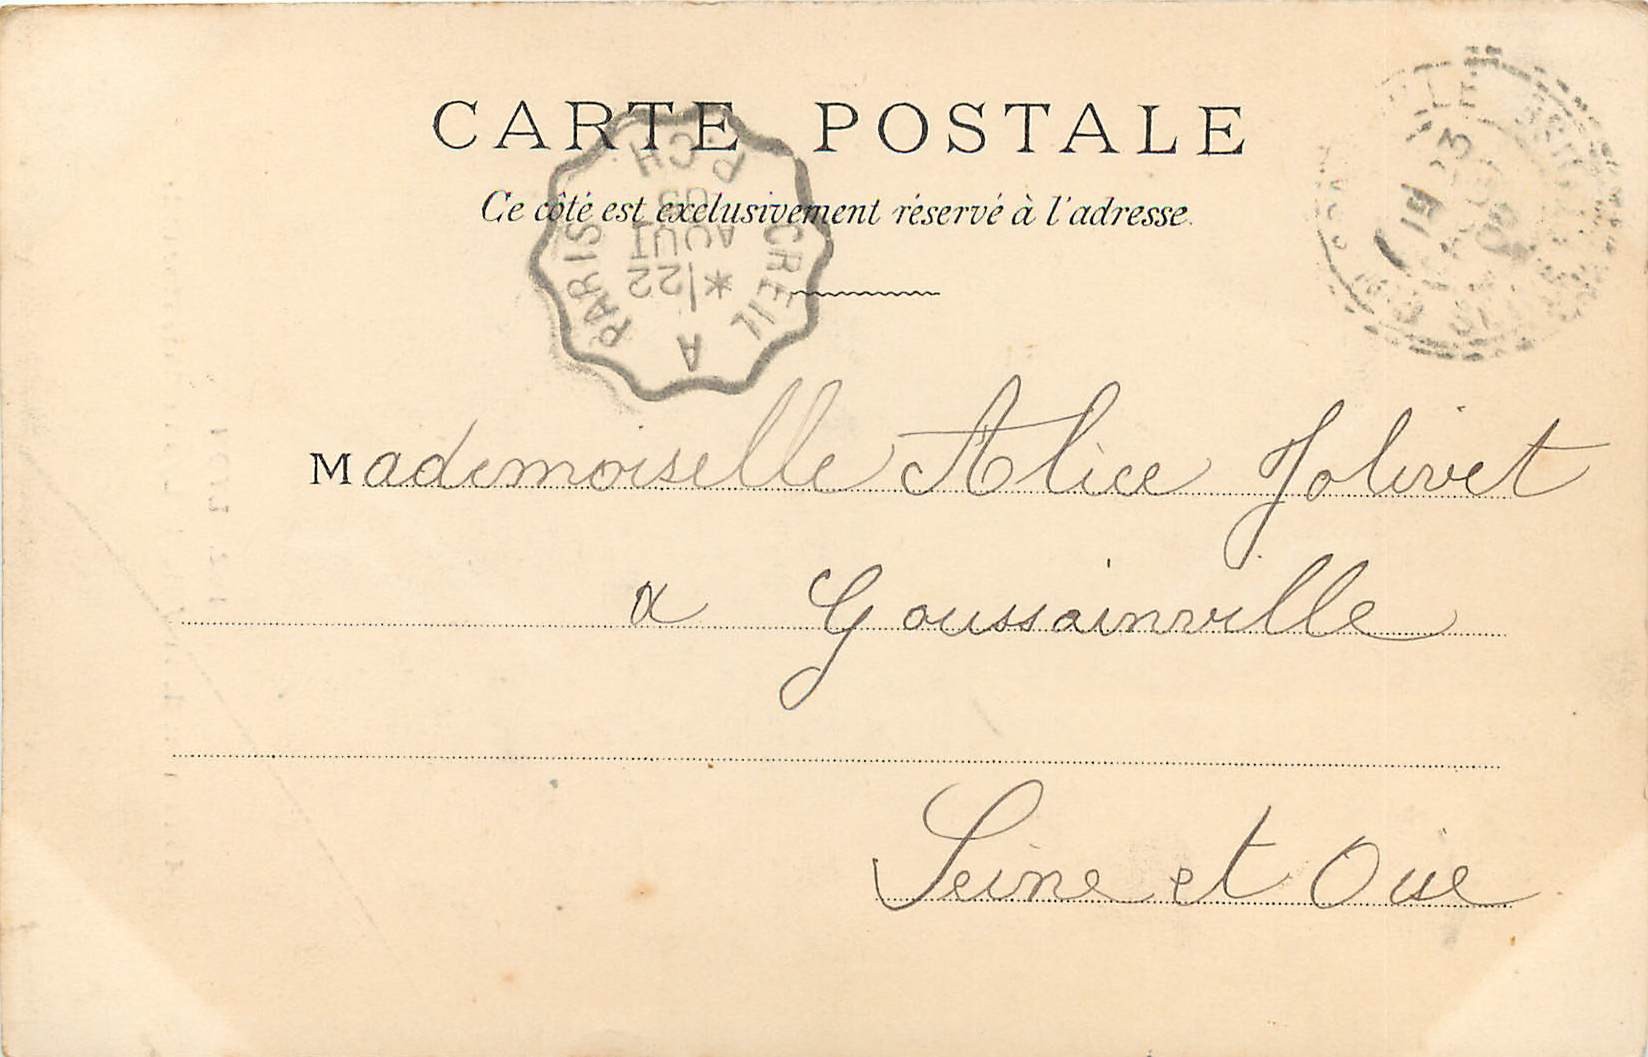 CARTE POSTALE
Ce côté est exclusivement réservé à l'adresse.
PARIS A CREIL
*/22
AOUT
03
P.CH
Mademoiselle Alice Jolivet
a Goussainville
Seine et Oise